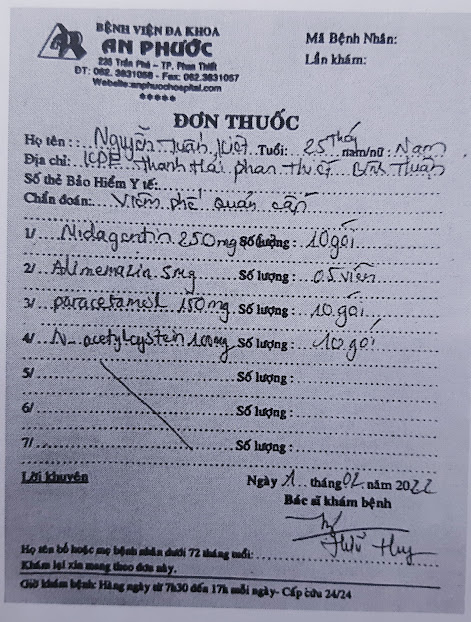 BỆNH VIỆN ĐA KHOA
AN PHƯỚC
235 Trần Phú - TP. Phan Thiết
ĐT: 062. 3831056 - Fax: 062.3831057
Website:anphuochospital.com
*****
Mã Bệnh Nhân:
Lần khám:
ĐƠN THUỐC
Họ tên : Nguyễn Tuấn Kiệt Tuổi: 25 Tháng nam/nữ : Nam
Địa chỉ: KP Thanh Hải phan thiết Bình Thuận
Số thẻ Bảo Hiểm Y tế:
Chẩn đoán: Viêm phế quản cấp
1/ Midagentin 250mg Số lượng : 10 gói
2/ Alimemazin 5mg Số lượng : 05 viên
3/ paracetamol 150mg Số lượng : 10 gói
4/ N-acetylcystein 100mg Số lượng : 10 gói
5/ Số lượng :
6/ Số lượng :
7/ Số lượng :
Lời khuyên
Ngày 1 tháng 02 năm 2022
Bác sĩ khám bệnh
Huy
Họ tên bố hoặc mẹ bệnh nhân dưới 72 tháng tuổi:
Khám lại xin mang theo đơn này.
Giờ khám bệnh: Hàng ngày từ 7h30 đến 17h mỗi ngày- Cấp cứu 24/24